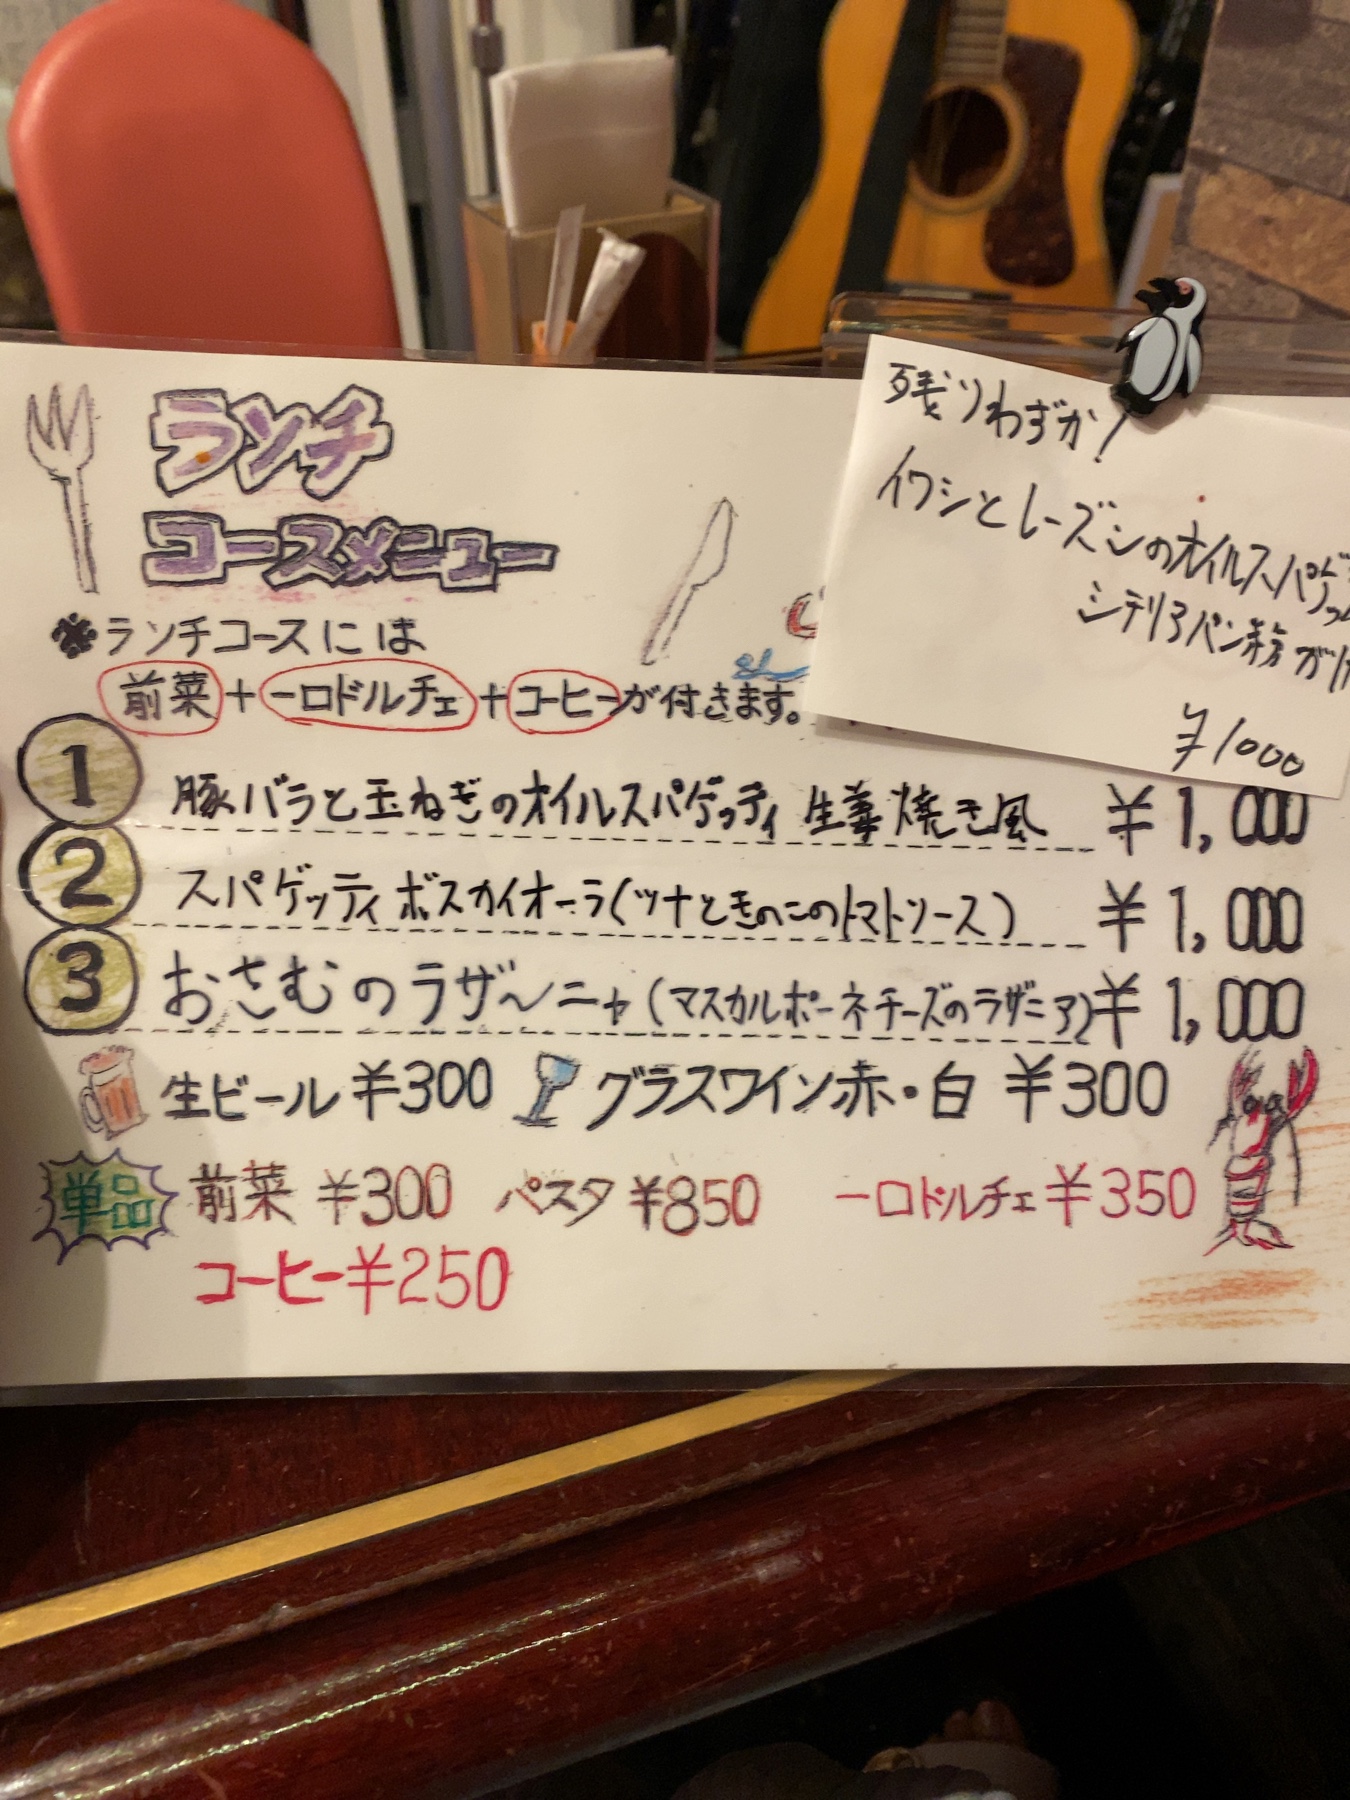 ランチ
コースメニュー
※ランチコースには
前菜+一口ドルチェ+コーヒーが付きます。
残りわずか!
イワシとレーズンのオイルスパゲッ
シチリアパン粉が
¥1000
1 豚バラと玉ねぎのオイルスパゲッティ 生姜焼き風 ¥1,000
2 スパゲッティ ボスカイオーラ(ツナときのこのトマトソース) ¥1,000
3 おさむのラザ〜ニャ(マスカルポーネチーズのラザニア) ¥1,000
生ビール ¥300 グラスワイン赤・白 ¥300
単品 前菜 ¥300 パスタ ¥850 一口ドルチェ ¥350
コーヒー ¥250